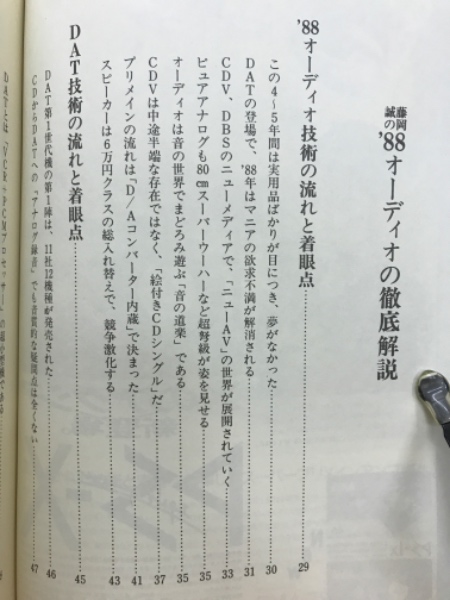 藤岡誠の'88オーディオの徹底解説
'88オーディオ技術の流れと着眼点……29
この4~5年間は実用品ばかりが目につき、夢がなかった……30
DATの登場で、'88年はマニアの欲求不満が解消される……31
CDV、DBSのニューメディアで、「ニューAV」の世界が展開されていく……33
ピュアアナログも80cmスーパーウーハーなど超弩級が姿を見せる……35
オーディオは音の世界でまどろみ遊ぶ「音の道楽」である……35
CDVは中途半端な存在ではなく、「絵付きCDシングル」だ……37
プリメインの流れは「D/Aコンバーター内蔵」で決まった……41
スピーカーは6万円クラスの総入れ替えで、競争激化する……43
DAT技術の流れと着眼点……45
DAT第1世代機の第1陣は、11社12機種が発売された……46
CDからDATへの「アナログ録音」でも音質的な疑問点は全くない……47
DATとは「VCR+PCMプロセッサー」の超小型機である